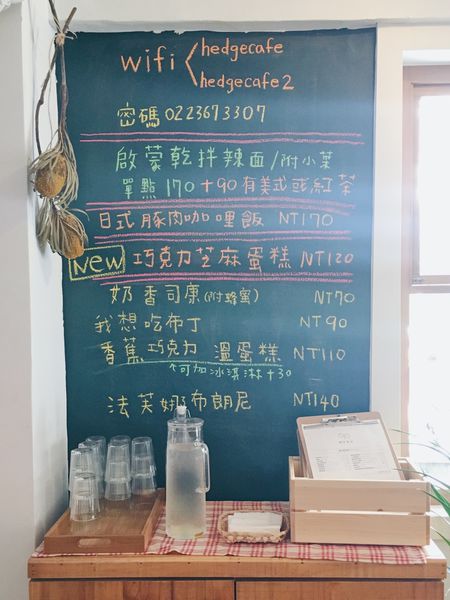 wifi < hedgecafe
hedgecafe2
密碼 0223673307
啟蒙乾拌辣面/附小菜
單點 170 +90 有美式或紅茶
日式豚肉咖哩飯 NT170
New 巧克力芝麻蛋糕 NT120
奶香司康(附蜂蜜) NT70
我想吃布丁 NT90
香蕉巧克力溫蛋糕 NT110
↖可加冰淇淋+30
法芙娜布朗尼 NT140